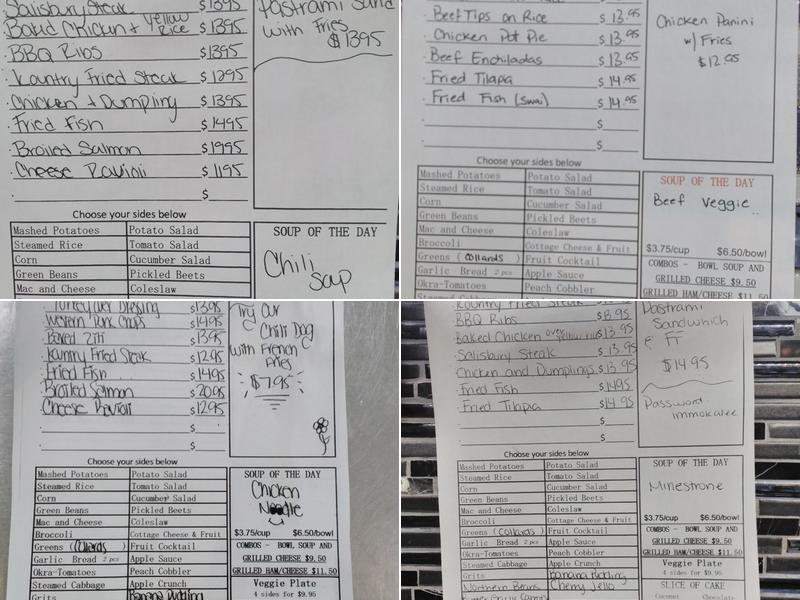 Salisbury Steak $1395
Baked Chicken & Yellow Rice $1395
BBQ Ribs $1395
Kountry Fried Steak $1295
Chicken & Dumpling $1395
Fried Fish $1495
Broiled Salmon $1995
Cheese Ravioli $1195
$
Pastrami Sand
with Fries
$1395
Choose your sides below
Mashed Potatoes Potato Salad
Steamed Rice Tomato Salad
Corn Cucumber Salad
Green Beans Pickled Beets
Mac and Cheese Coleslaw
SOUP OF THE DAY
Chili
Soup
Beef Tips on Rice $13.95
Chicken Pot Pie $13.95
Beef Enchiladas $13.95
Fried Tilapia $14.95
Fried Fish (Swai) $14.95
$
$
Chicken Panini
w/ Fries
$12.95
Choose your sides below
Mashed Potatoes Potato Salad
Steamed Rice Tomato Salad
Corn Cucumber Salad
Green Beans Pickled Beets
Mac and Cheese Coleslaw
Broccoli Cottage Cheese & Fruit
Greens (Collards) Fruit Cocktail
Garlic Bread 2 pcs Apple Sauce
Okra-Tomatoes Peach Cobbler
Steamed Cabbage
SOUP OF THE DAY
Beef Veggie
$3.75/cup $6.50/bowl
COMBOS - BOWL SOUP AND
GRILLED CHEESE $9.50
GRILLED HAM/CHEESE $11.50
Turkey over Dressing $1395
Western Pork Chops $1495
Baked Ziti $1395
Kuntry Fried Steak $1295
Fried Fish $1495
Broiled Salmon $2095
Cheese Ravioli $1295
$
$
Try Our
Chili Dog
with French
Fries
$7.95
Choose your sides below
Mashed Potatoes Potato Salad
Steamed Rice Tomato Salad
Corn Cucumber Salad
Green Beans Pickled Beets
Mac and Cheese Coleslaw
Broccoli Cottage Cheese & Fruit
Greens (Collards) Fruit Cocktail
Garlic Bread 2 pcs Apple Sauce
Okra-Tomatoes Peach Cobbler
Steamed Cabbage Apple Crunch
Grits Banana Pudding
SOUP OF THE DAY
Chicken
Noodle
$3.75/cup $6.50/bowl
COMBOS - BOWL SOUP AND
GRILLED CHEESE $9.50
GRILLED HAM/CHEESE $11.50
Veggie Plate
4 sides for $9.95
Kountry Fried Steak
BBQ Ribs $13.95
Baked Chicken over yellow rice $13.95
Salisbury Steak $13.95
Chicken and Dumplings $13.95
Fried Fish $14.95
Fried Tilapia $14.95
$
$
Pastrami
Sandwhich
FF
$14.95
Password:
immokalee
Choose your sides below
Mashed Potatoes Potato Salad
Steamed Rice Tomato Salad
Corn Cucumber Salad
Green Beans Pickled Beets
Mac and Cheese Coleslaw
Broccoli Cottage Cheese & Fruit
Greens (Collards) Fruit Cocktail
Garlic Bread 2 pcs Apple Sauce
Okra-Tomatoes Peach Cobbler
Steamed Cabbage Apple Crunch
Grits Banana Pudding
Northern Beans Cherry Jello
SOUP OF THE DAY
Minestrone
$3.75/cup $6.50/bowl
COMBOS - BOWL SOUP AND
GRILLED CHEESE $9.50
GRILLED HAM/CHEESE $11.50
Veggie Plate
4 sides for $9.95
SLICE OF CAKE
Coconut Chocolate